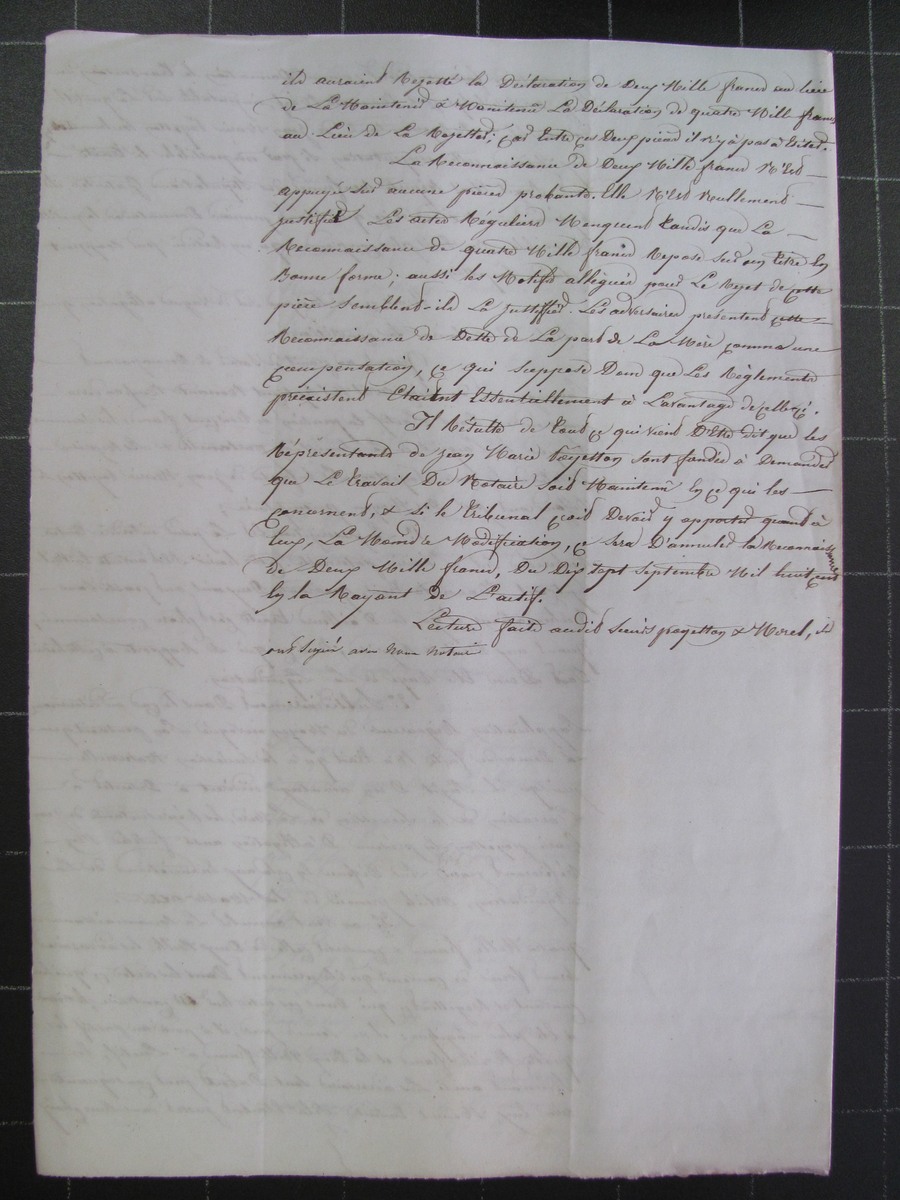 ils auraient Rejetté la Déclaration de Deux Mille francs au lieu
de La Maintenir & Maintenu La Déclaration de quatre Mille francs
au Lieu de La Rejetter; car Entre ces Deux pièces il n'y a pas à Hésiter.
La Reconnaissance de Deux Mille francs N'Est —
appuyée Sur aucune pièces probante. Elle N'Est Nullement —
justifié Les actes Réguliers Menquent tandis que La —
Reconnaissance de quatre Mille francs Repose Sur un titre En
Bonne forme; aussi les Motifs allégués pour Le Rejet de cette
pièce Semblent-ils La justiffier. Les adversaires présentent cette —
Reconnaissance de Dette de La part de La Mère comme une
compensation, ce qui Suppose Donc que Les Règlements
préexistent Etaient Essentiellement à L'avantage de celle-ci.
Il Résulte de tout ce qui vient D'Etre dit que les
Réprésentants de jean Marie poyetton sont fondés à Demander
que Le travail Du Notaire Soit Maintenu En ce qui les —
concernent, & Si le tribunal croit Devoir y apporter quand à
Eux, La Moindre Modification, ce Sera D'annuler la Reconnaissance
de Deux Mille francs, Du Dix Sept Septembre Mil huit cent
En la Rayant de L'actif.
Lecture faite audit Sieurs poyetton & Morel, ils
ont Signés avec Nous Notaire